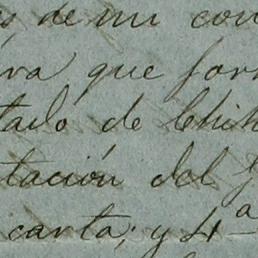 s de mi con
va que for
tado de Chih
tación del
carta; y 4ª